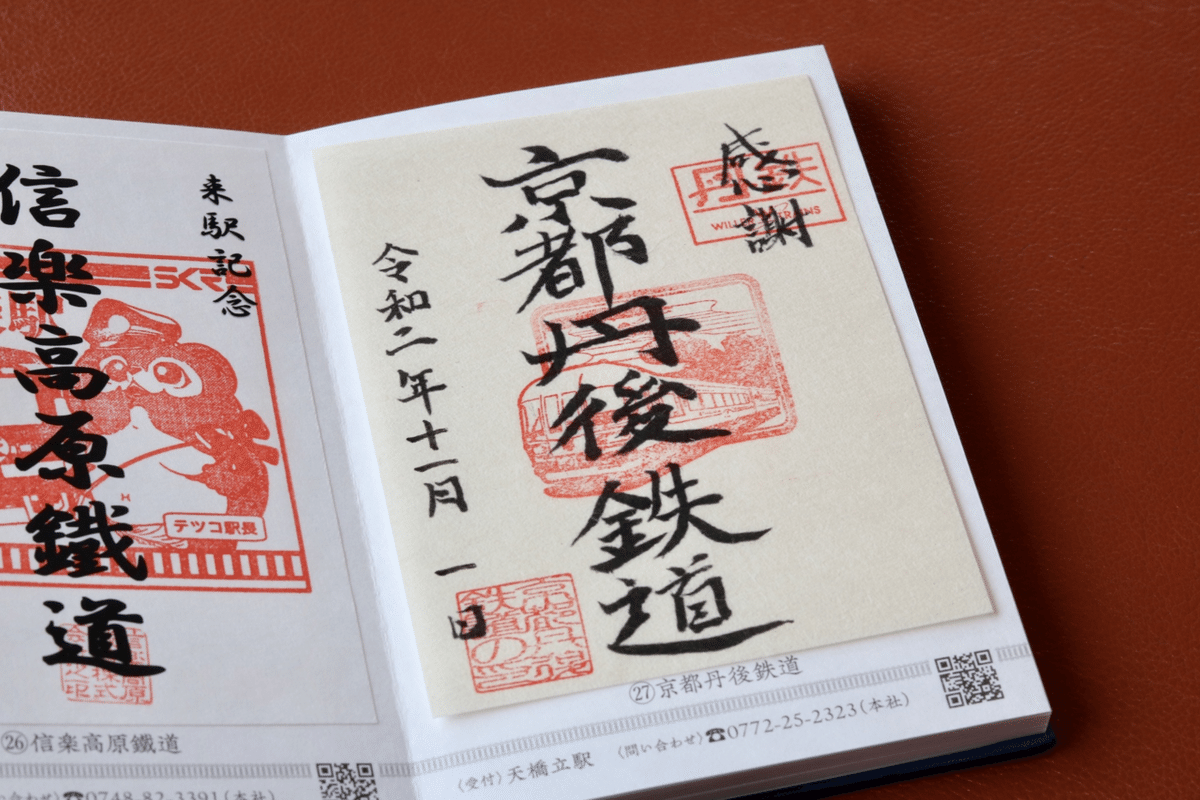 感謝
丹鉄
WILLER TRAINS
京都丹後鉄道
令和二年十一月 一日
㉗京都丹後鉄道
(受付)天橋立駅
(問い合わせ)☎0772-25-2323(本社)
来駅記念
信楽高原鐵道
テツコ駅長
㉖信楽高原鐵道
い合わせ)☎0748-82-3391(本社)